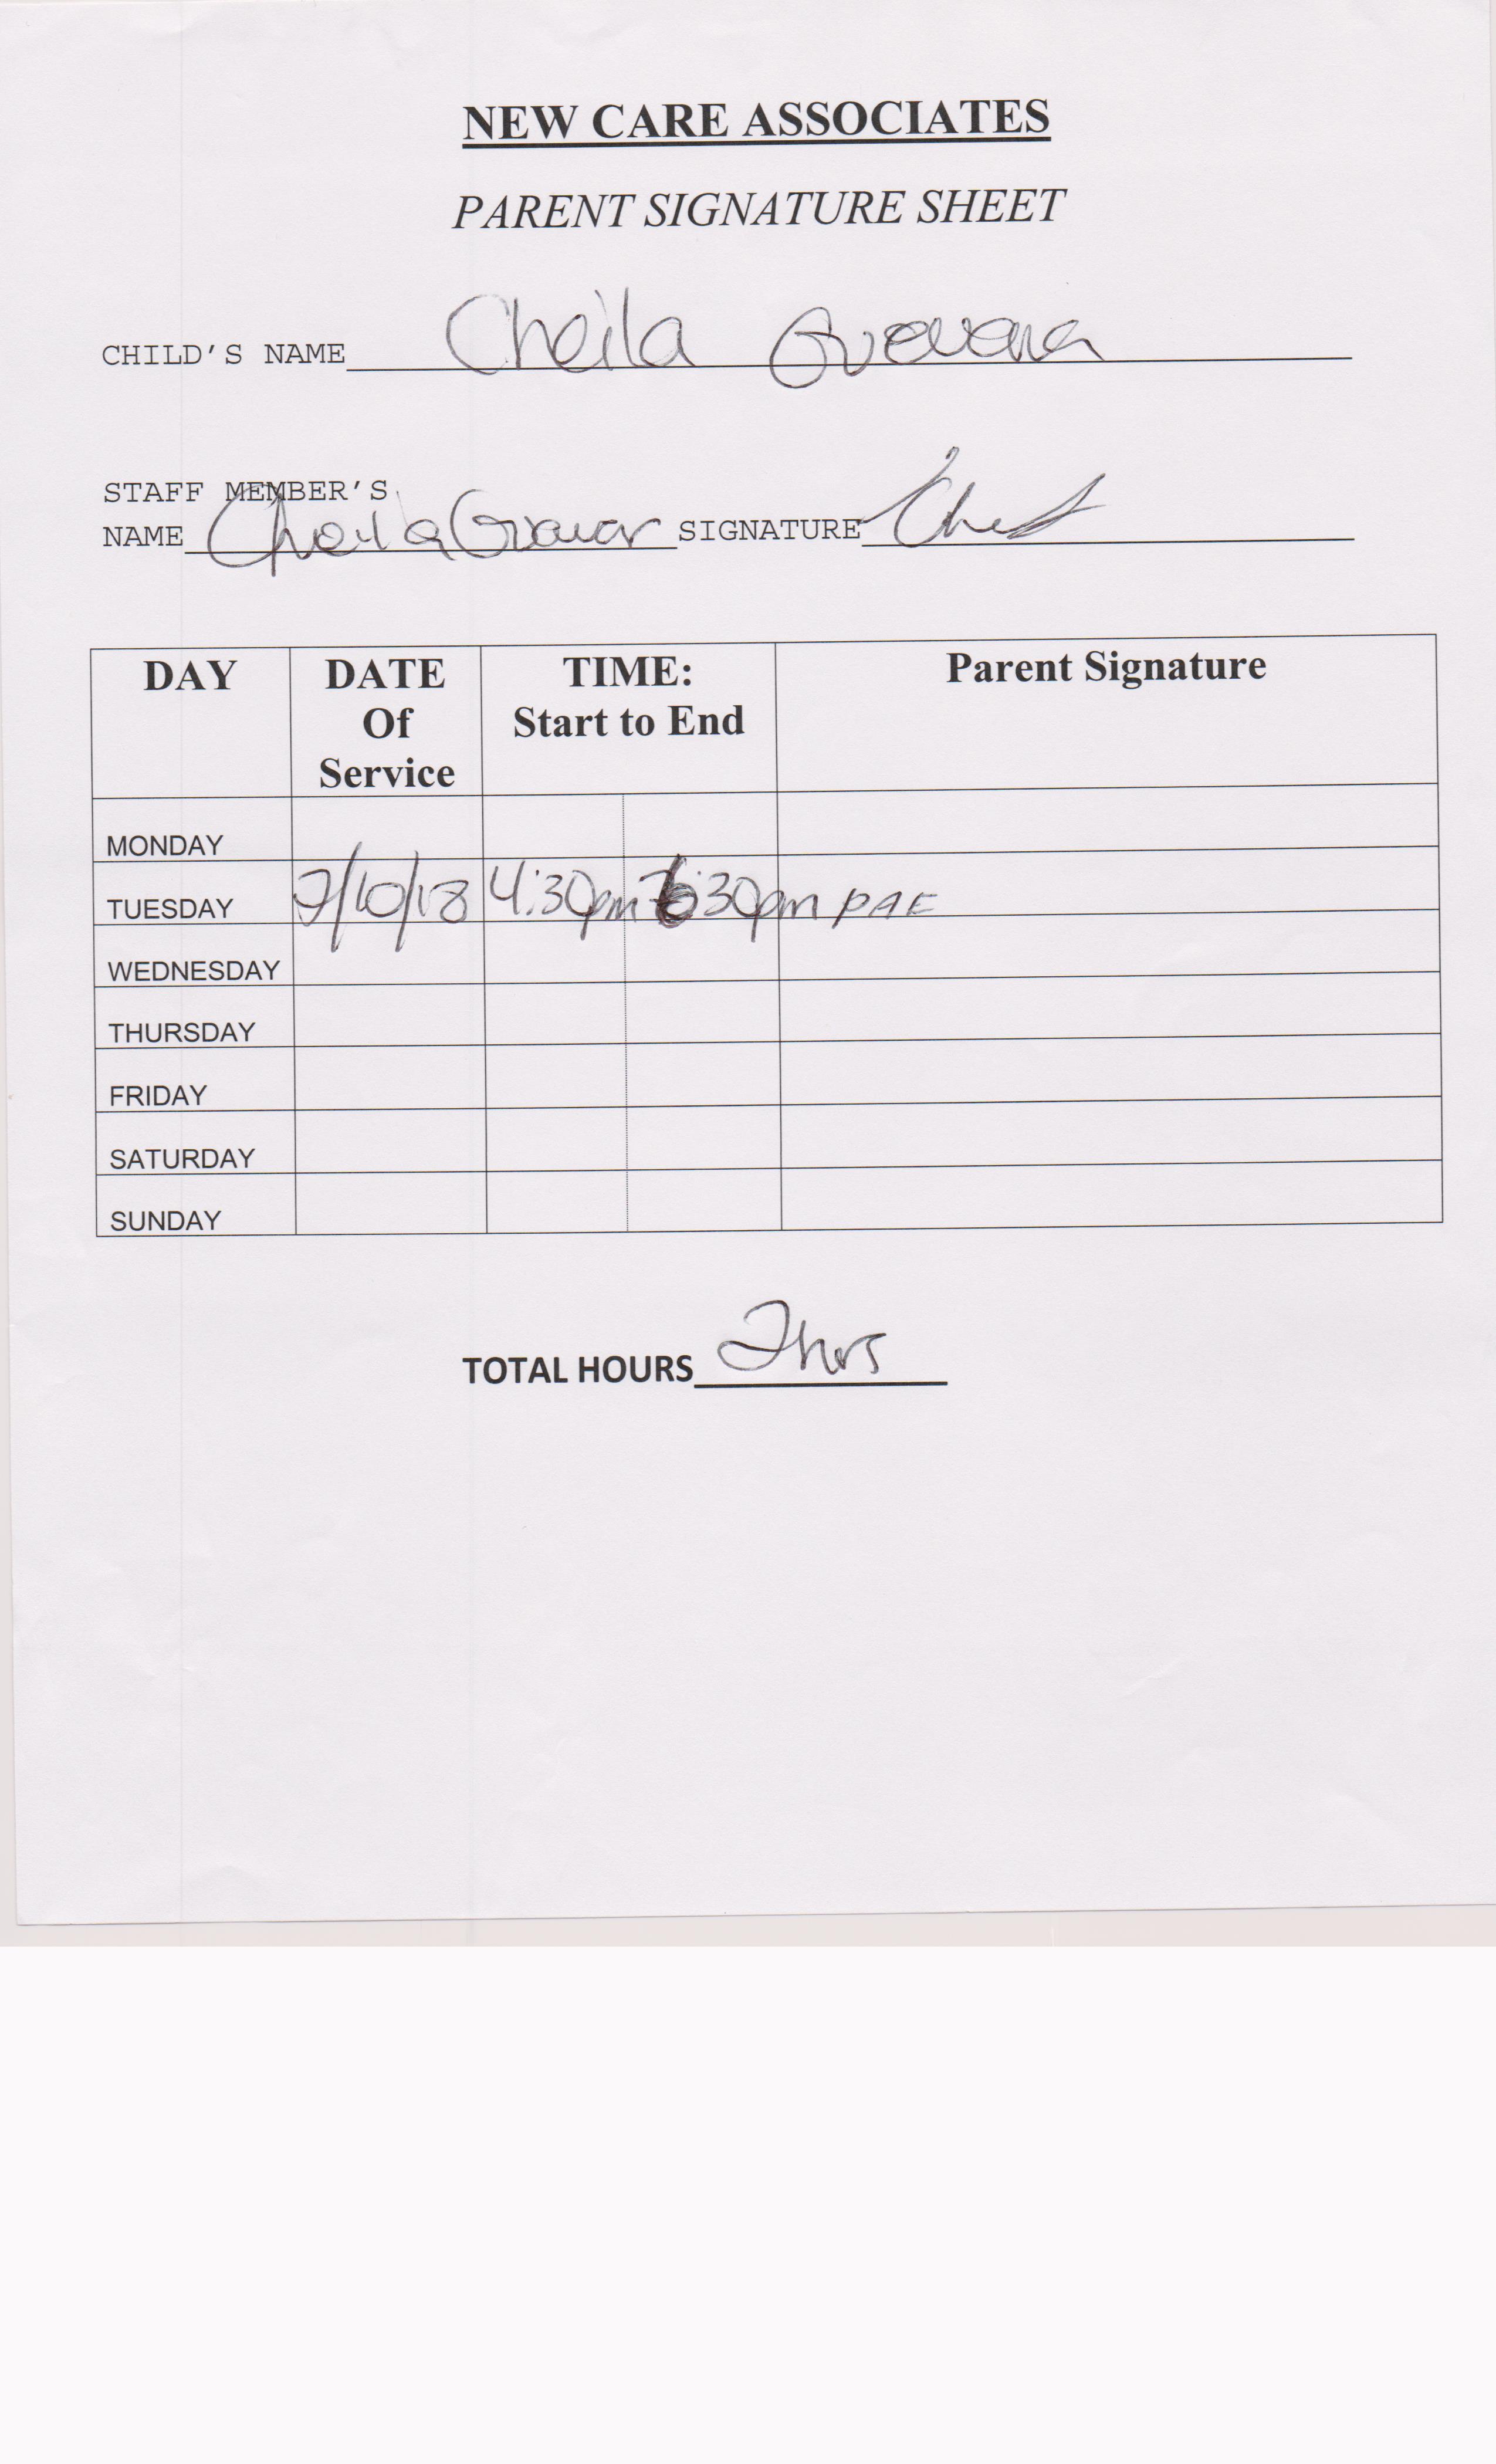 NEW CARE ASSOCIATES
PARENT SIGNATURE SHEET
CHILD'S NAME Cheila Guevara
STAFF MEMBER'S
NAME Cheila SIGNATURE
DAY DATE Of Service TIME: Start to End Parent Signature
MONDAY
TUESDAY 7/10/18 4:30pm 6:30pm PAE
WEDNESDAY
THURSDAY
FRIDAY
SATURDAY
SUNDAY
TOTAL HOURS 2hrs